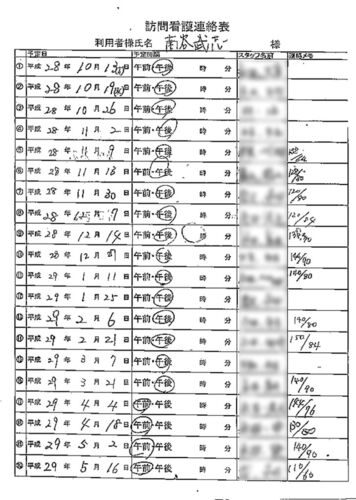 訪問看護連絡表
利用者様氏名 南谷武志 様
予定日 予定時間 スタッフ名前 連絡メモ
① 平成 28 年 10 月 13 日 午前・午後 時 分
② 平成 28 年 10 月 19 日 午前・午後 時 分
③ 平成 28 年 10 月 26 日 午前・午後 時 分
④ 平成 28 年 11 月 2 日 午前・午後 時 分
⑤ 平成 28 年 11 月 9 日 午前・午後 時 分
⑥ 平成 28 年 11 月 日 午前・午後 時 分
⑦ 平成 28 年 11 月 30 日 午前・午後 時 分 120/80
⑧ 平成 28 年 12 月 7 日 午前・午後 時 分 120/84
⑨ 平成 28 年 12 月 14 日 午前・午後 時 分
⑩ 平成 28 年 12 月 日 午前・午後 時 分
⑪ 平成 29 年 1 月 11 日 午前・午後 時 分
⑫ 平成 29 年 1 月 25 日 午前・午後 時 分
⑬ 平成 29 年 2 月 6 日 午前・午後 時 分 140/80
⑭ 平成 29 年 2 月 21 日 午前・午後 時 分 150/84
⑮ 平成 29 年 3 月 7 日 午前・午後 時 分
⑯ 平成 29 年 3 月 21 日 午前・午後 時 分 140/90
⑰ 平成 29 年 4 月 4 日 午前・午後 時 分
⑱ 平成 29 年 4 月 18 日 午前・午後 時 分
⑲ 平成 29 年 5 月 2 日 午前・午後 時 分 140/90
⑳ 平成 29 年 5 月 16 日 午前・午後 時 分 110/60